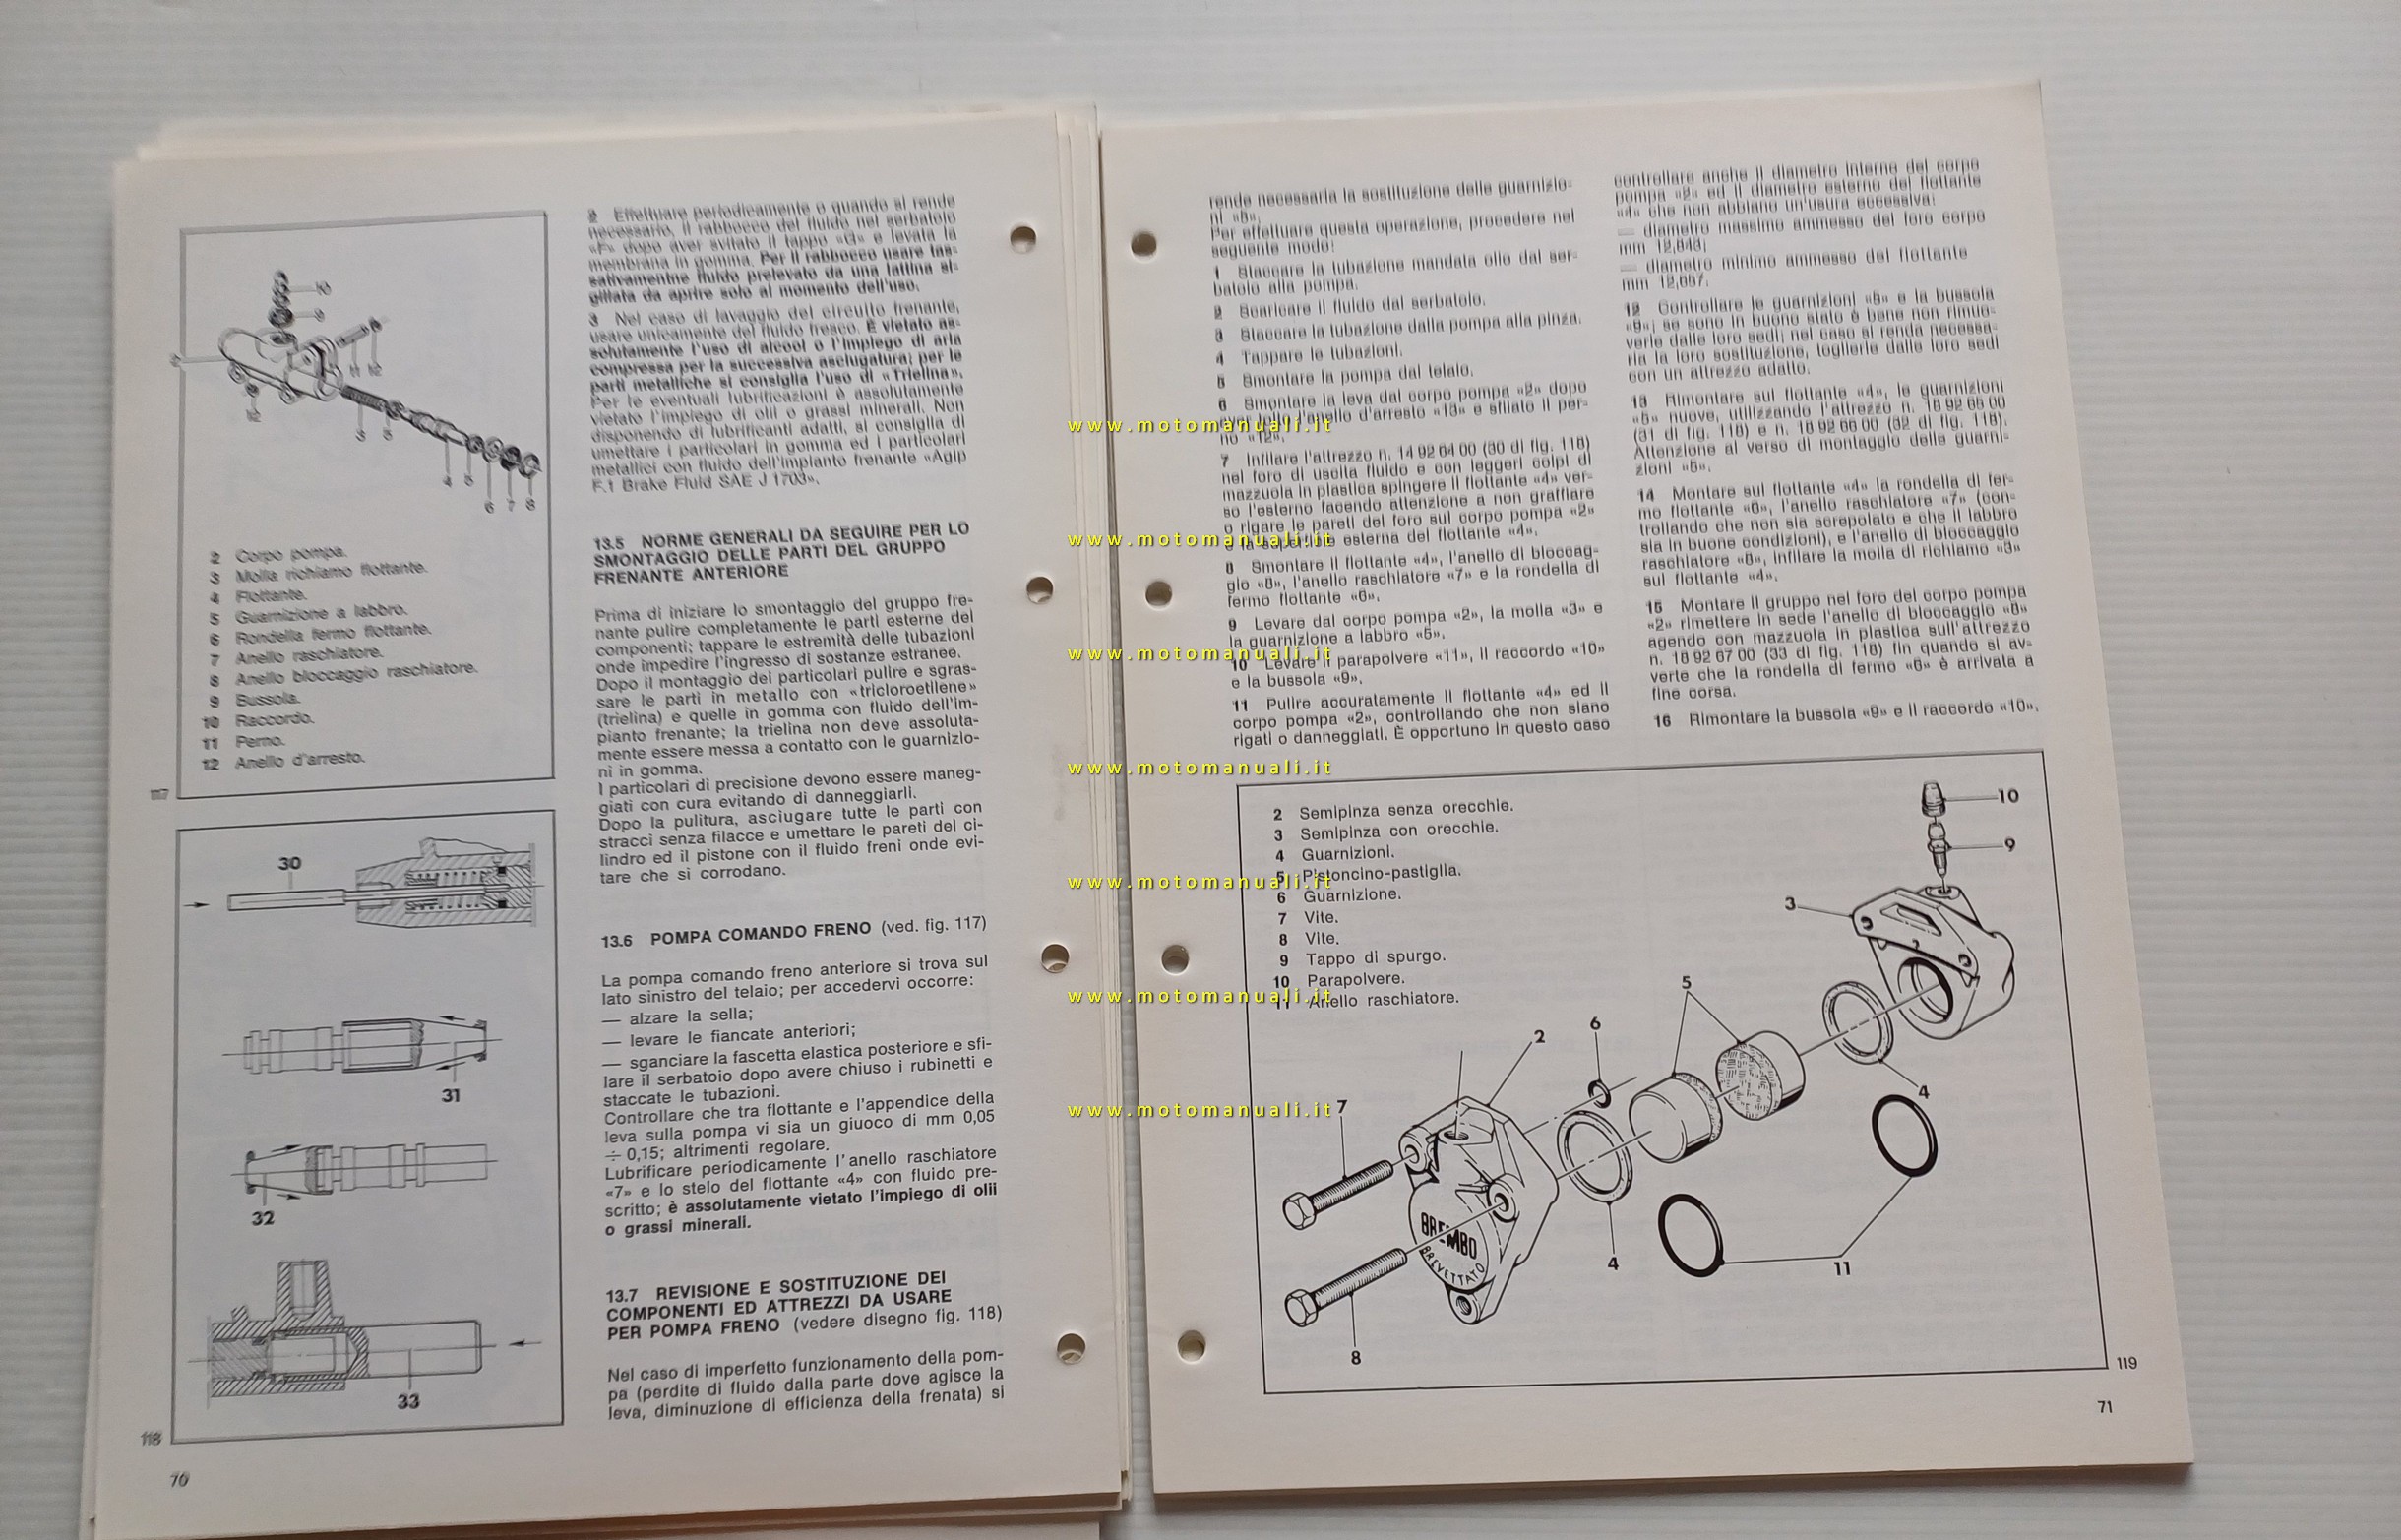 10
9
2
11 12
12
3
5
4
5
6 7 8
2 Corpo pompa.
3 Molla richiamo flottante.
4 Flottante.
5 Guarnizione a labbro.
6 Rondella fermo flottante.
7 Anello raschiatore.
8 Anello bloccaggio raschiatore.
9 Bussola.
10 Raccordo.
11 Perno.
12 Anello d'arresto.
117
30
31
32
33
118
70
2 Effettuare periodicamente o quando si rende
necessario, il rabbocco del fluido nel serbatoio
«F» dopo aver svitato il tappo «G» e levata la
membrana in gomma. Per il rabbocco usare tas-
sativamentne fluido prelevato da una lattina si-
gillata da aprire solo al momento dell'uso.
3 Nel caso di lavaggio del circuito frenante,
usare unicamente del fluido fresco. È vietato as-
solutamente l'uso di alcool o l'impiego di aria
compressa per la successiva asciugatura; per le
parti metalliche si consiglia l'uso di «Trielina».
Per le eventuali lubrificazioni è assolutamente
vietato l'impiego di olii o grassi minerali. Non
disponendo di lubrificanti adatti, si consiglia di
umettare i particolari in gomma ed i particolari
metallici con fluido dell'impianto frenante «Agip
F.1 Brake Fluid SAE J 1703».
13.5 NORME GENERALI DA SEGUIRE PER LO
SMONTAGGIO DELLE PARTI DEL GRUPPO
FRENANTE ANTERIORE
Prima di iniziare lo smontaggio del gruppo fre-
nante pulire completamente le parti esterne del
componenti; tappare le estremità delle tubazioni
onde impedire l'ingresso di sostanze estranee.
Dopo il montaggio dei particolari pulire e sgras-
sare le parti in metallo con «tricloroetilene»
(trielina) e quelle in gomma con fluido dell'im-
pianto frenante; la trielina non deve assoluta-
mente essere messa a contatto con le guarnizio-
ni in gomma.
I particolari di precisione devono essere maneg-
giati con cura evitando di danneggiarli.
Dopo la pulitura, asciugare tutte le parti con
stracci senza filacce e umettare le pareti del ci-
lindro ed il pistone con il fluido freni onde evi-
tare che si corrodano.
13.6 POMPA COMANDO FRENO (ved. fig. 117)
La pompa comando freno anteriore si trova sul
lato sinistro del telaio; per accedervi occorre:
— alzare la sella;
— levare le fiancate anteriori;
— sganciare la fascetta elastica posteriore e sfi-
lare il serbatoio dopo avere chiuso i rubinetti e
staccate le tubazioni.
Controllare che tra flottante e l'appendice della
leva sulla pompa vi sia un giuoco di mm 0,05
÷ 0,15; altrimenti regolare.
Lubrificare periodicamente l'anello raschiatore
«7» e lo stelo del flottante «4» con fluido pre-
scritto; è assolutamente vietato l'impiego di olii
o grassi minerali.
13.7 REVISIONE E SOSTITUZIONE DEI
COMPONENTI ED ATTREZZI DA USARE
PER POMPA FRENO (vedere disegno fig. 118)
Nel caso di imperfetto funzionamento della pom-
pa (perdite di fluido dalla parte dove agisce la
leva, diminuzione di efficienza della frenata) si
rende necessaria la sostituzione delle guarnizio-
ni «5».
Per effettuare questa operazione, procedere nel
seguente modo:
1 Staccare la tubazione mandata olio dal ser-
batoio alla pompa.
2 Scaricare il fluido dal serbatoio.
3 Staccare la tubazione dalla pompa alla pinza.
4 Tappare le tubazioni.
5 Smontare la pompa dal telaio.
6 Smontare la leva dal corpo pompa «2» dopo
aver tolto l'anello d'arresto «13» e sfilato il per-
no «12».
7 Infilare l'attrezzo n. 14 92 64 00 (30 di fig. 118)
nel foro di uscita fluido e con leggeri colpi di
mazzuola in plastica spingere il flottante «4» ver-
so l'esterno facendo attenzione a non graffiare
o rigare le pareti del foro sul corpo pompa «2»
e la superficie esterna del flottante «4».
8 Smontare il flottante «4», l'anello di bloccag-
gio «8», l'anello raschiatore «7» e la rondella di
fermo flottante «6».
9 Levare dal corpo pompa «2», la molla «3» e
la guarnizione a labbro «5».
10 Levare il parapolvere «11», il raccordo «10»
e la bussola «9».
11 Pulire accuratamente il flottante «4» ed il
corpo pompa «2», controllando che non siano
rigati o danneggiati. È opportuno in questo caso
controllare anche il diametro interno del corpo
pompa «2» ed il diametro esterno del flottante
«4» che non abbiano un'usura eccessiva:
— diametro massimo ammesso del foro corpo
mm 12,843;
— diametro minimo ammesso del flottante
mm 12,657.
12 Controllare le guarnizioni «5» e la bussola
«9»; se sono in buono stato è bene non rimuo-
verle dalle loro sedi; nel caso si renda necessa-
ria la loro sostituzione, toglierle dalle loro sedi
con un attrezzo adatto.
13 Rimontare sul flottante «4», le guarnizioni
«5» nuove, utilizzando l'attrezzo n. 18 92 65 00
(31 di fig. 118) e n. 18 92 66 00 (32 di fig. 118).
Attenzione al verso di montaggio delle guarni-
zioni «5».
14 Montare sul flottante «4» la rondella di fer-
mo flottante «6», l'anello raschiatore «7» (con-
trollando che non sia screpolato e che il labbro
sia in buone condizioni), e l'anello di bloccaggio
raschiatore «8», infilare la molla di richiamo «3»
sul flottante «4».
15 Montare il gruppo nel foro del corpo pompa
«2» rimettere in sede l'anello di bloccaggio «8»
agendo con mazzuola in plastica sull'attrezzo
n. 18 92 67 00 (33 di fig. 118) fin quando si av-
verte che la rondella di fermo «6» è arrivata a
fine corsa.
16 Rimontare la bussola «9» e il raccordo «10».
2 Semipinza senza orecchie.
3 Semipinza con orecchie.
4 Guarnizioni.
5 Pistoncino-pastiglia.
6 Guarnizione.
7 Vite.
8 Vite.
9 Tappo di spurgo.
10 Parapolvere.
11 Anello raschiatore.
10
9
3
5
6
2
4
7
BREMBO
BREVETTATO
4
11
8
119
71
www.motomanuali.it
www.motomanuali.it
www.motomanuali.it
www.motomanuali.it
www.motomanuali.it
www.motomanuali.it
www.motomanuali.it